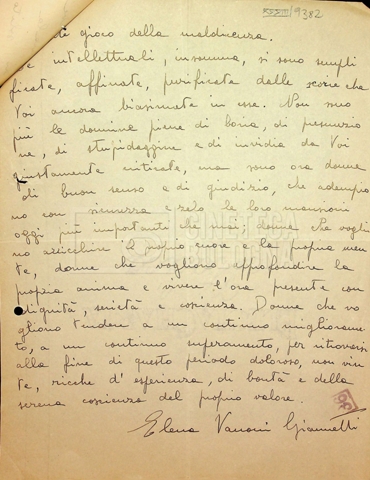 XXXIII/9382
gioco della maldicenza.
intellettuali, insomma, si sono sempli
ficate, affinate, purificate dalle scorie che
Voi ancora biasimate in esse. Non sono
più le donnine piene di boria, di presunzio
ne, di stupidaggine e di invidia da Voi
giustamente criticate, ma sono ora donne
di buon senso e di giudizio, che adempio
no con sicurezza e zelo le loro mansioni
oggi più importanti che mai; donne che voglio
no arricchire il proprio cuore e la propria men
te, donne che vogliono approfondire la
propria anima e vivere l'ora presente con
dignità, serietà e coscienza. Donne che vo
gliono tendere a un continuo miglioramen
to, a un continuo superamento, per ritrovarsi
alla fine di questo periodo doloroso, non vin
te, ricche d'esperienza, di bontà e della
serena coscienza del proprio valore.
Elena Vannini Giannelli
CINETECA